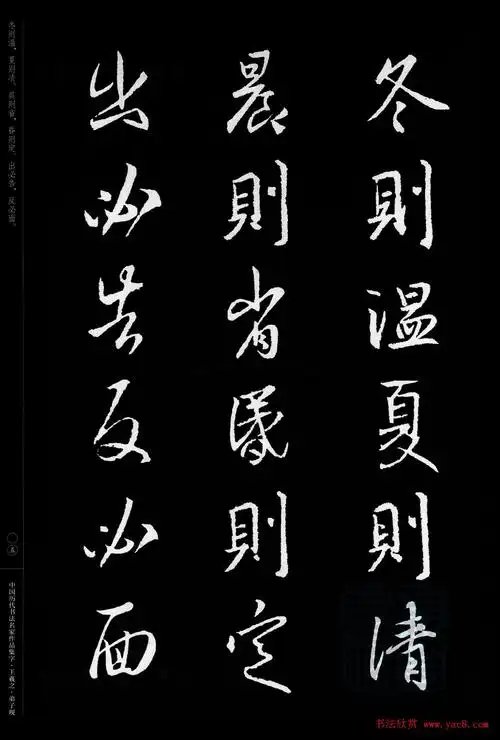 冬則温夏則清
晨則省昏則定
出必告反必面
冬则温，夏则清，晨则省，昏则定，出必告，反必面。
〇五
中国历代书法名家作品集字·王羲之·弟子规
书法欣赏 www.yac8.com